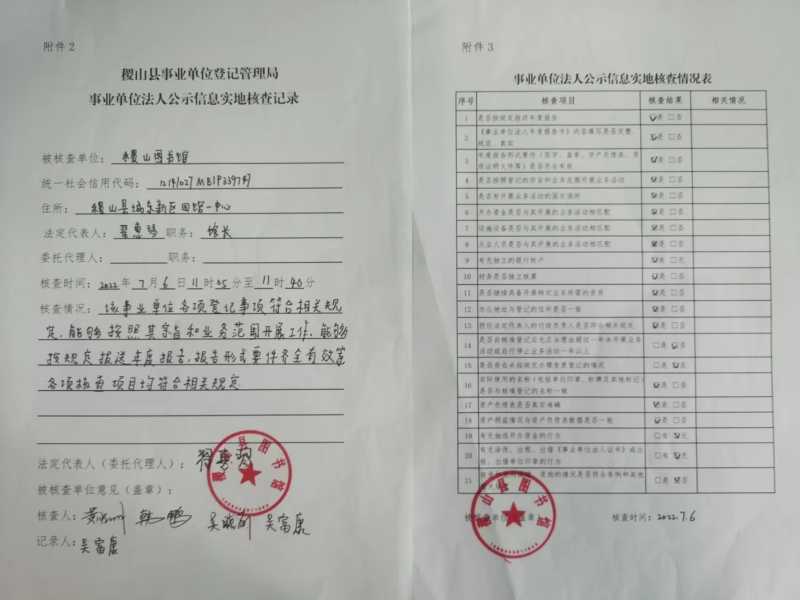 附件2
稷山县事业单位登记管理局
事业单位法人公示信息实地核查记录
被核查单位：稷山图书馆
统一社会信用代码：
住所：稷山县城东新区四馆一中心
法定代表人：翟惠 职务：馆长
委托代理人： 职务：
核查时间：2022年7月6日11时05分至11时40分
核查情况：该事业单位各项登记事项符合相关规
定，能够按照其宗旨和业务范围开展工作，能够
按规定报送年度报告，报告形式要件齐全有效等
各项核查项目均符合相关规定
法定代表人（委托代理人）：
被核查单位意见（盖章）：
稷山县图书馆
核查人： 吴富康
记录人：吴富康
附件3
事业单位法人公示信息实地核查情况表
序号 核查项目 核查结果 相关情况
1 是否按规定报送年度报告 是 否
2 《事业单位法人年度报告书》内容填写是否完整、
规范、真实 是 否
3 年度报告形式要件（签字、盖章、资产负债表、资
质证明文件等）是否齐全有效 是 否
4 是否按照登记的宗旨和业务范围开展活动 是 否
5 是否有开展业务活动的固定场所 是 否
6 开办资金是否与其开展的业务活动相匹配 是 否
7 设施设备是否与其开展的业务活动相匹配 是 否
8 从业人员是否与其开展的业务活动相匹配 是 否
9 有无独立的银行账户 有 无
10 财务是否独立核算 是 否
11 是否继续具备开展特定业务所需的资质 是 否
12 办公地址与登记的住所是否一致 是 否
13 担任法定代表人的行政负责人是否符合相关规定 是 否
14 是否自核准登记后无正当理由超过一年未开展业务
活动或自行停止业务活动一年以上 是 否
15 是否存在未按规定办理变更登记的情况 是 否
16 实际使用的名称（包括单位印章、标牌及其他标记）
是否与核准登记的名称一致 是 否
17 资产负债表是否真实准确 是 否
18 资产损益情况与资产负债表数据是否一致 是 否
19 有无抽逃开办资金的行为 有 无
20 有无涂改、出租、出借《事业单位法人证书》或出
租、出借单位印章的行为 有 无
21 是 否
稷山县图书馆
核查时间：2022.7.6